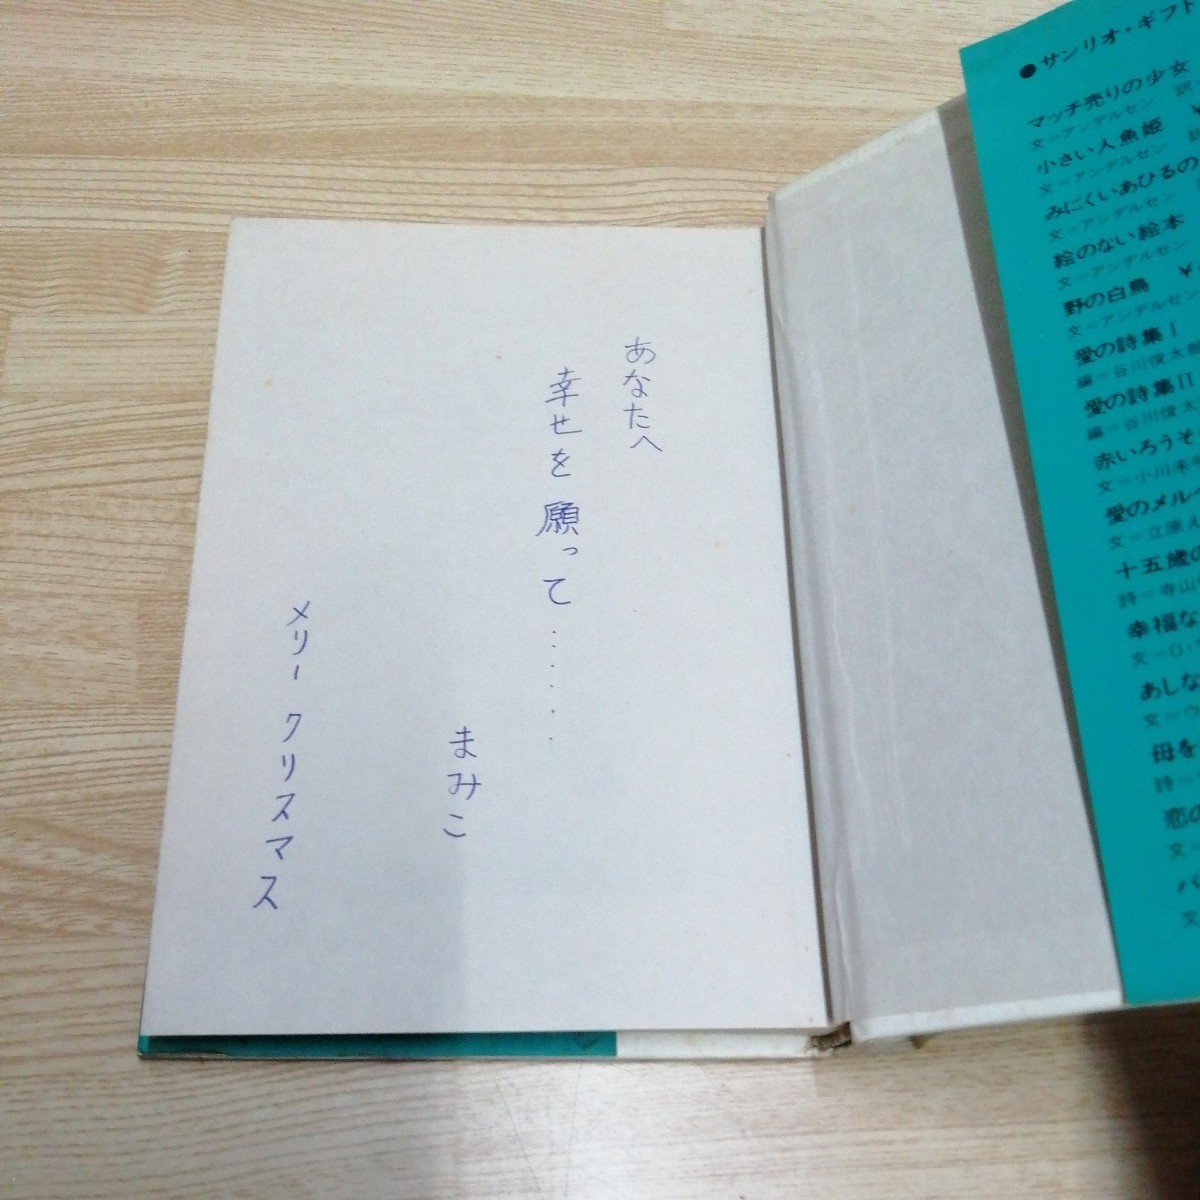 あなたへ
幸せを願って‥‥‥
まみこ
メリー クリスマス
●サンリオ・ギフト
マッチ売りの少女
文=アンデルセン 訳
小さい人魚姫 ¥
文=アンデルセン
みにくいあひるの
文=アンデルセン
絵のない絵本
文=アンデルセン
野の白鳥 ¥
文=アンデルセン
愛の詩集 I
編=谷川俊太郎
愛の詩集 II
編=谷川俊太
赤いろうそ
文=小川未明
愛のメル
文=立原え
十五歳の
詩=寺山
幸福な
文=O・
あしな
文=ウ
母を
詩=
恋の
文=
文